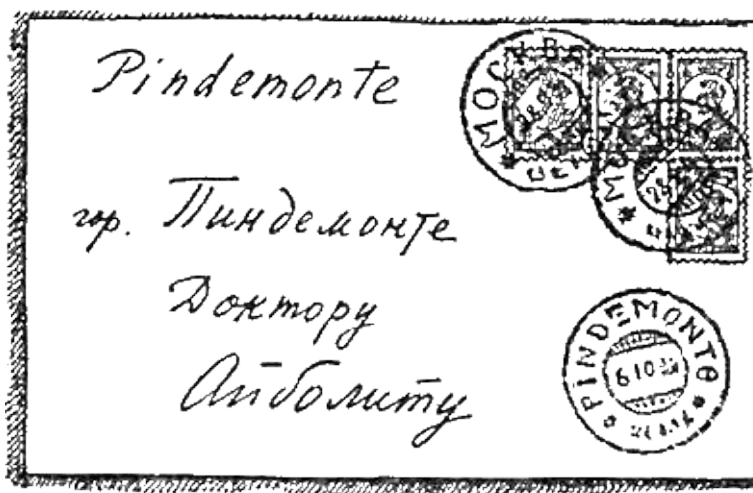 Pindemonte
гор. Пиндемонте
Доктору
Айболиту
МОСКВА
PINDEMONTE
6 10